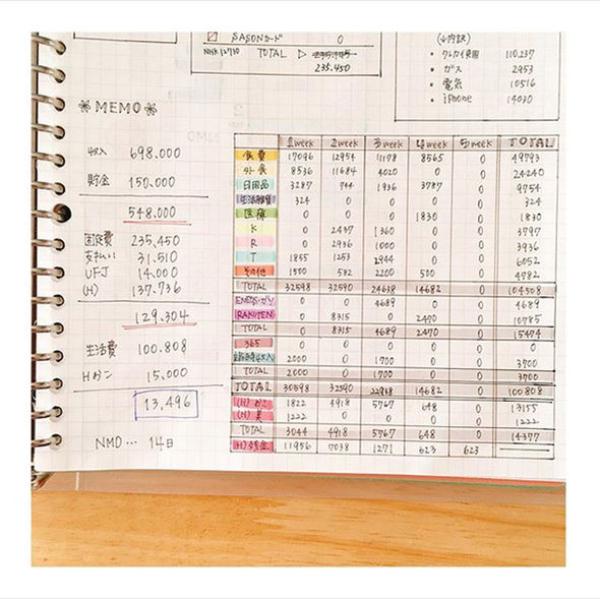 SAISONカード 0
TOTAL ▷
235.450
クレカイ費用 110.237
ガス 2953
電気 10516
iPhone 14030
※MEMO※
収入 698.000
貯金 150.000
548.000
固定費 235.450
支払い 31.510
UFJ 14.000
(H) 137.736
129.304
生活費 100.808
Hガン 15.000
13,496
NMD… 14日
1week 2week 3week 4week 5week TOTAL
食費 17096 12954 11178 8565 0 49793
外食 8536 11684 4020 0 0 24240
日用品 3287 744 1936 3787 0 9754
324 0 0 0 0 324
医療 0 0 0 1830 0 1830
K 0 2437 1360 0 0 3797
R 0 2936 1000 0 0 3936
T 1855 1253 2944 0 0 6052
その他 1500 582 2200 500 0 4782
TOTAL 32598 32590 24638 14682 0 104508
0 0 4689 0 0 4689
RAKUTEN 0 8315 0 2470 0 10785
TOTAL 0 8315 4689 2470 0 15474
365 0 0 0 0 0 0
2000 0 1700 0 0 3700
TOTAL 2000 0 1700 0 0 3700
TOTAL 30598 32590 22938 14682 0 100808
(H) 1822 4918 5767 648 0 13155
(H) 1222 0 0 0 0 1222
TOTAL 3044 4918 5767 648 0 14377
(H) 11956 7038 1271 623 623